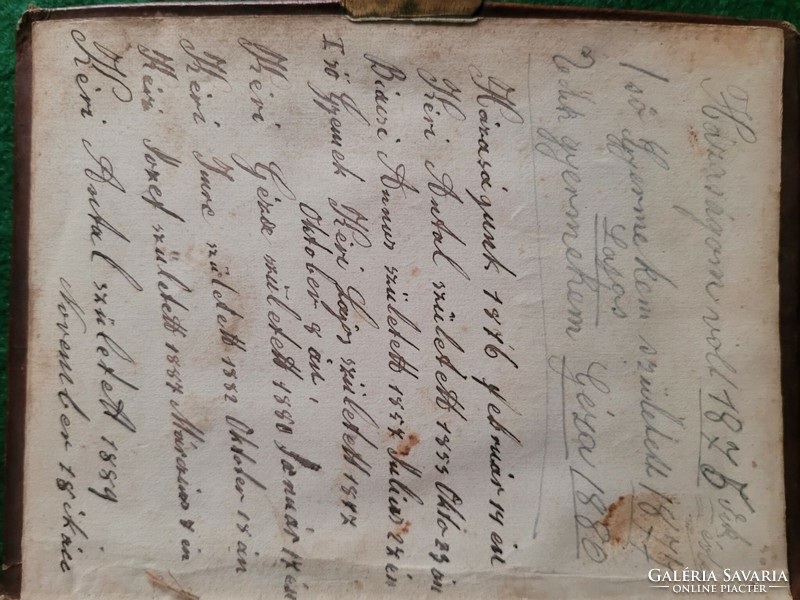 Házasságom volt 1875 ék
1ső Gyermekem született 1877
Lajos
2dik gyermekem Géza 1880
Házaságunk 1876 február 14 én
Kéri Antal született 1853 Okto 23 án
Annus született 1857 Julius 27 én
I ső Gyemek Kéri Lajos született 1877
Oktober 8 án
Kéri Géza született 1880 Januar 17 én
Kéri Imre született 1882 Oktober 15 án
Kéri Jozef született 1887 Márzius 8 án
Kéri Antal született 1889
November 18 ikán
GALÉRIA SAVARIA
ONLINE PIACTÉR